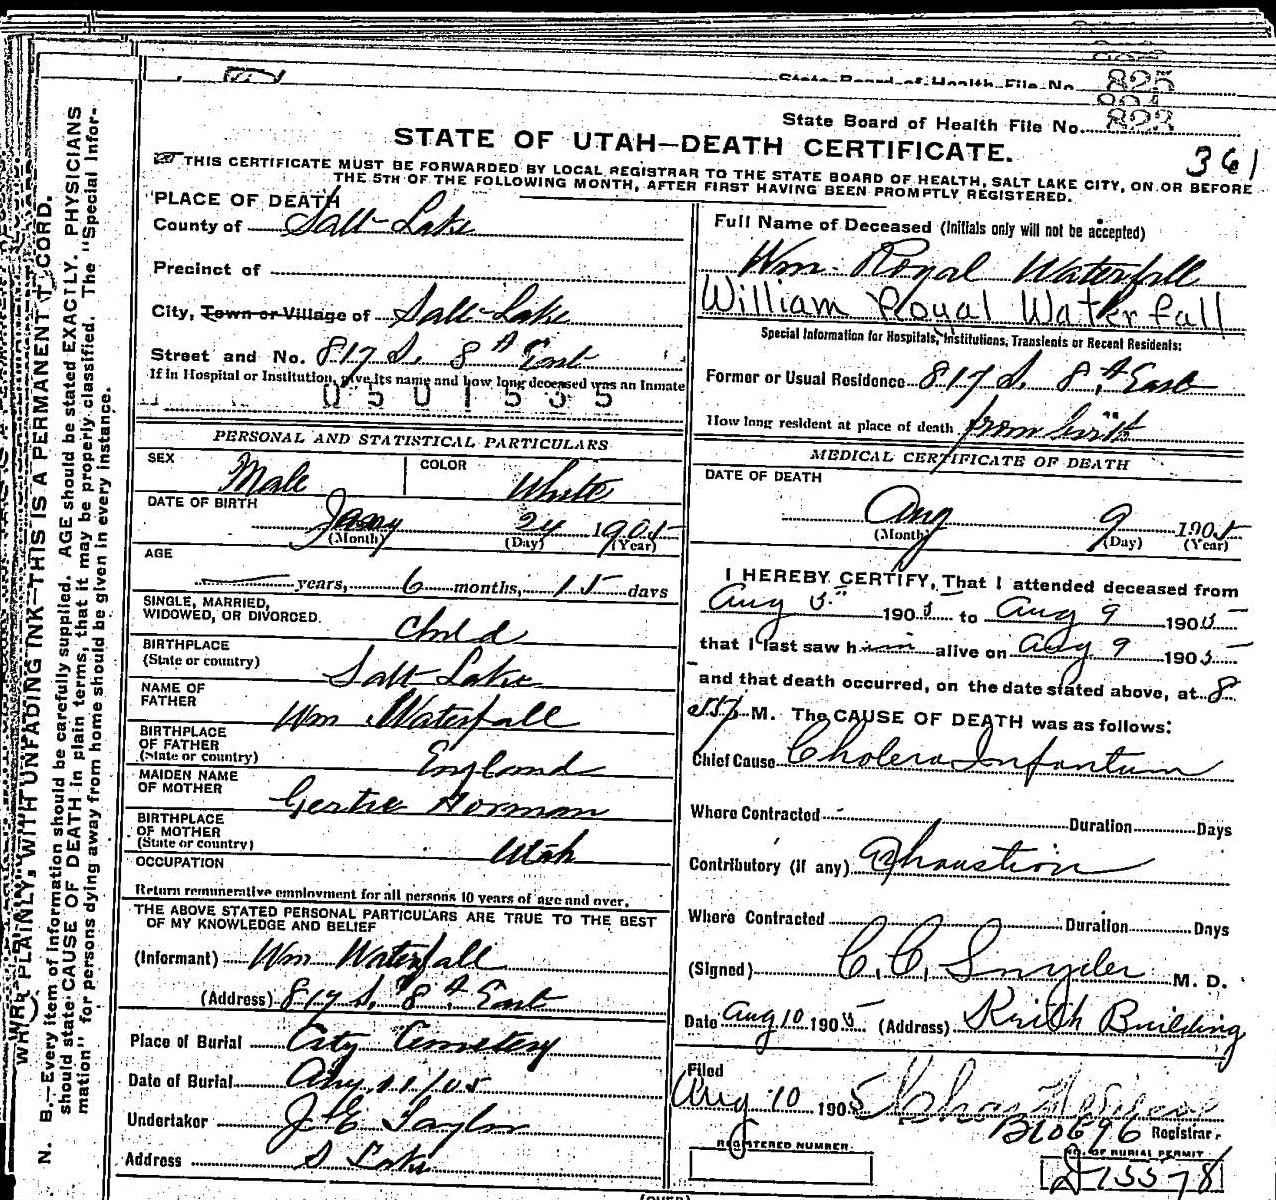 State Board of Health File No. 825
State Board of Health File No. 823
STATE OF UTAH—DEATH CERTIFICATE.
361
THIS CERTIFICATE MUST BE FORWARDED BY LOCAL REGISTRAR TO THE STATE BOARD OF HEALTH, SALT LAKE CITY, ON OR BEFORE
THE 5TH OF THE FOLLOWING MONTH, AFTER FIRST HAVING BEEN PROMPTLY REGISTERED.
PLACE OF DEATH
County of Salt Lake
Precinct of
City, Town or Village of Salt Lake
Street and No. 817 S. 8th East
If in Hospital or Institution, give its name and how long deceased was an Inmate
0501535
PERSONAL AND STATISTICAL PARTICULARS
SEX Male COLOR White
DATE OF BIRTH
Jany 24 1905
(Month) (Day) (Year)
AGE
years, 6 months, 15 days
SINGLE, MARRIED,
WIDOWED, OR DIVORCED. Child
BIRTHPLACE
(State or country) Salt Lake
NAME OF
FATHER Wm Waterfall
BIRTHPLACE
OF FATHER
(State or country) England
MAIDEN NAME
OF MOTHER Gertie Horman
BIRTHPLACE
OF MOTHER
(State or country) Utah
OCCUPATION
Return remunerative employment for all persons 10 years of age and over.
THE ABOVE STATED PERSONAL PARTICULARS ARE TRUE TO THE BEST
OF MY KNOWLEDGE AND BELIEF
(Informant) Wm Waterfall
(Address) 817 S. 8th East
Place of Burial City Cemetery
Date of Burial Aug 11/05
Undertaker J E Taylor
Address S Lake
Full Name of Deceased (Initials only will not be accepted)
Wm. Royal Waterfall
William Royal Waterfall
Special Information for Hospitals, Institutions, Transients or Recent Residents:
Former or Usual Residence 817 S. 8th East
How long resident at place of death from birth
MEDICAL CERTIFICATE OF DEATH
DATE OF DEATH
Aug 9 1905
(Month) (Day) (Year)
I HEREBY CERTIFY, That I attended deceased from
Aug 5" 1905 to Aug 9 1905
that I last saw him alive on Aug 9 1905
and that death occurred, on the date stated above, at 8
M. The CAUSE OF DEATH was as follows:
Chief Cause Cholera Infantum
Where Contracted Duration Days
Contributory (if any) Exhaustion
Where Contracted Duration Days
(Signed) C. C. Snyder M. D.
Date Aug 10 1905 (Address) Keith Building
Filed
Aug 10 1905
Registrar.
REGISTERED NUMBER.
NO. OF BURIAL PERMIT
(OVER)
N. B.—Every item of information should be carefully supplied. AGE should be stated EXACTLY. PHYSICIANS
should state CAUSE OF DEATH in plain terms, that it may be properly classified. The "Special Infor-
mation" for persons dying away from home should be given in every instance.
WRITE PLAINLY, WITH UNFADING INK—THIS IS A PERMANENT RECORD.